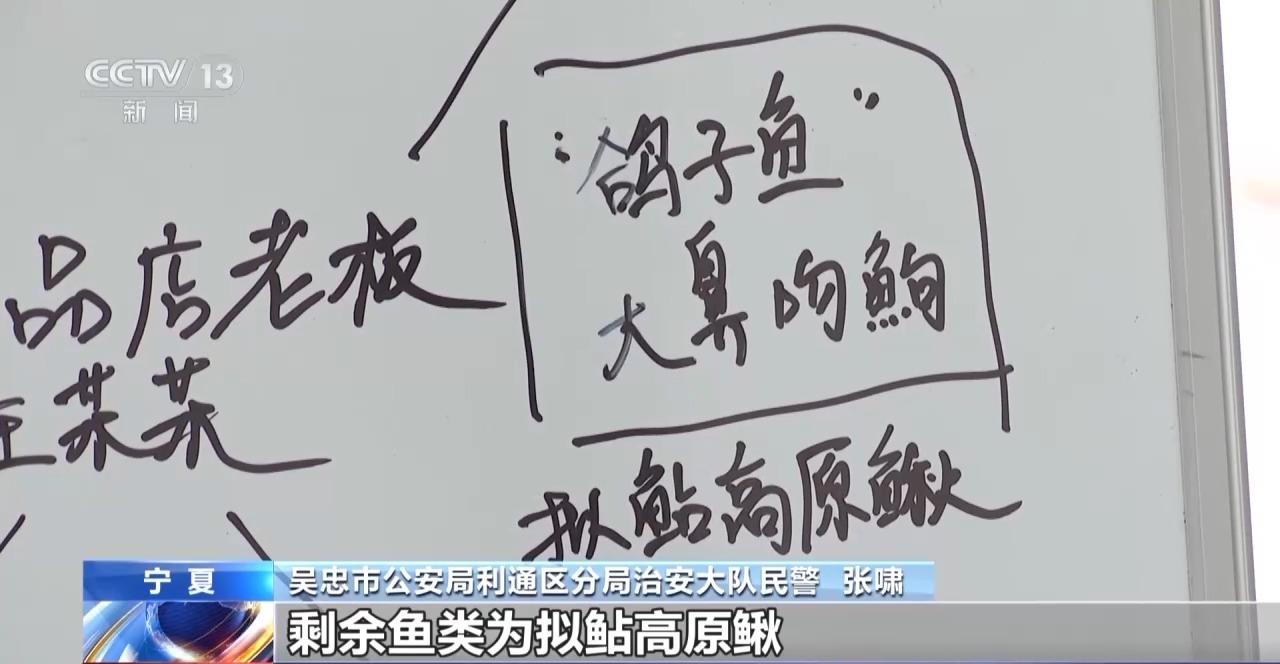 CCTV 13
新闻
"鸽子鱼"
大鼻吻鮈
品店老板
王某某
拟鲇高原鳅
宁夏
吴忠市公安局利通区分局治安大队民警 张啸
剩余鱼类为拟鲇高原鳅